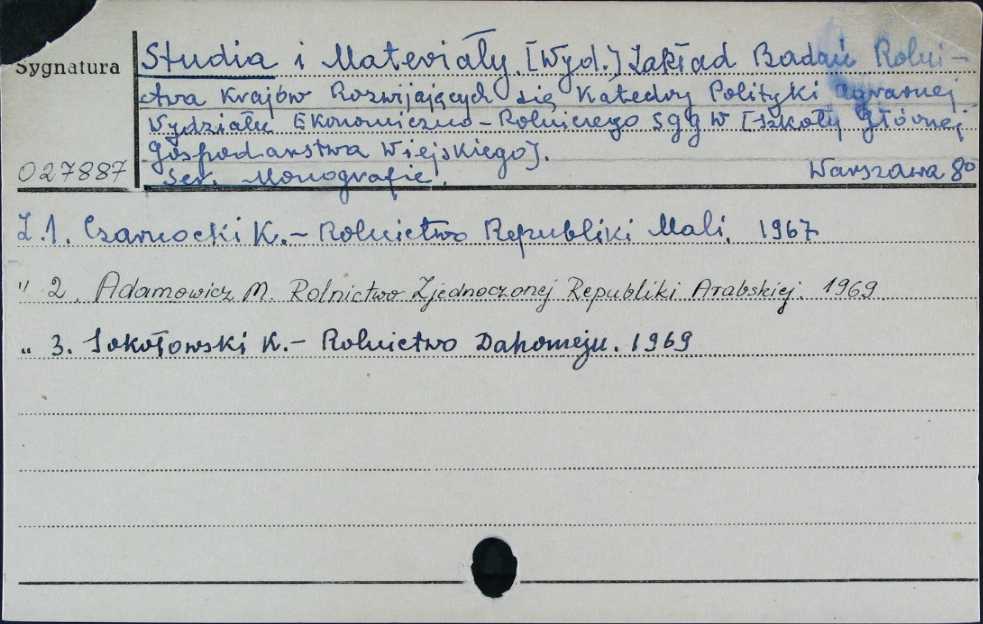 Sygnatura
Studia i Materiały. [Wyd.] Zakład Badań Rolni-
ctwa Krajów Rozwijających się Katedry Polityki Agrarnej
Wydziału Ekonomiczno-Rolniczego SGGW [Szkoły Głównej
Gospodarstwa Wiejskiego].
027887 Ser. Monografie. Warszawa 8°
Z.1. Czarnocki K. – Rolnictwo Republiki Mali. 1967
" 2. Adamowicz M. Rolnictwo Zjednoczonej Republiki Arabskiej. 1969
" 3. Sokołowski K. – Rolnictwo Dahomeju. 1969